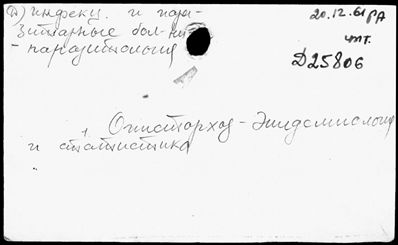 инфекц. и пара-
зитарные бол-ни
- паразитология
20.12.61 РА
чт.
D25806
1. Описторхоз - Эпидемиология
и статистика